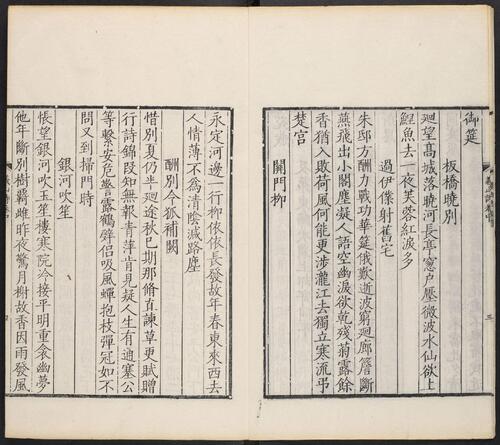 御筵
板橋曉別
廻望髙城落曉河長亭窻户壓微波水仙欲上
鯉魚去一夜芙蓉紅淚多
過伊僕射舊宅
朱邸方酬力戰功華筵俄歎逝波窮廻廊簷斷
燕飛去小閣塵凝人語空幽淚欲乾殘菊露餘
香猶入敗荷風何能更涉瀧江去獨立寒流弔
楚宫
關門柳
永定河邊一行柳依依長發故年春東來西去
人情薄不為清陰減路塵
酬別令狐補闕
惜別夏仍半廻途秋已期那脩直諫草更賦贈
行詩錦段知無報青萍肯見疑人生有通塞公
等繫安危警露鶴辭侣吸風蟬抱枝彈冠如不
問又到掃門時
銀河吹笙
悵望銀河吹玉笙樓寒院冷接平明重衾幽夢
他年斷別樹羇雌昨夜驚月榭故香因雨發風